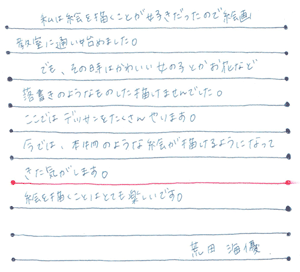 私は絵を描くことが好きだったので絵画
教室に通い始めました。
でも、その時はかわいい女の子とかお花など
落書きのようなものした描けませんでした。
ここではデッサンをたくさんやります。
今では、本物のような絵が描けるようになって
きた気がします。
絵を描くことはとても楽しいです。
荒田 海優